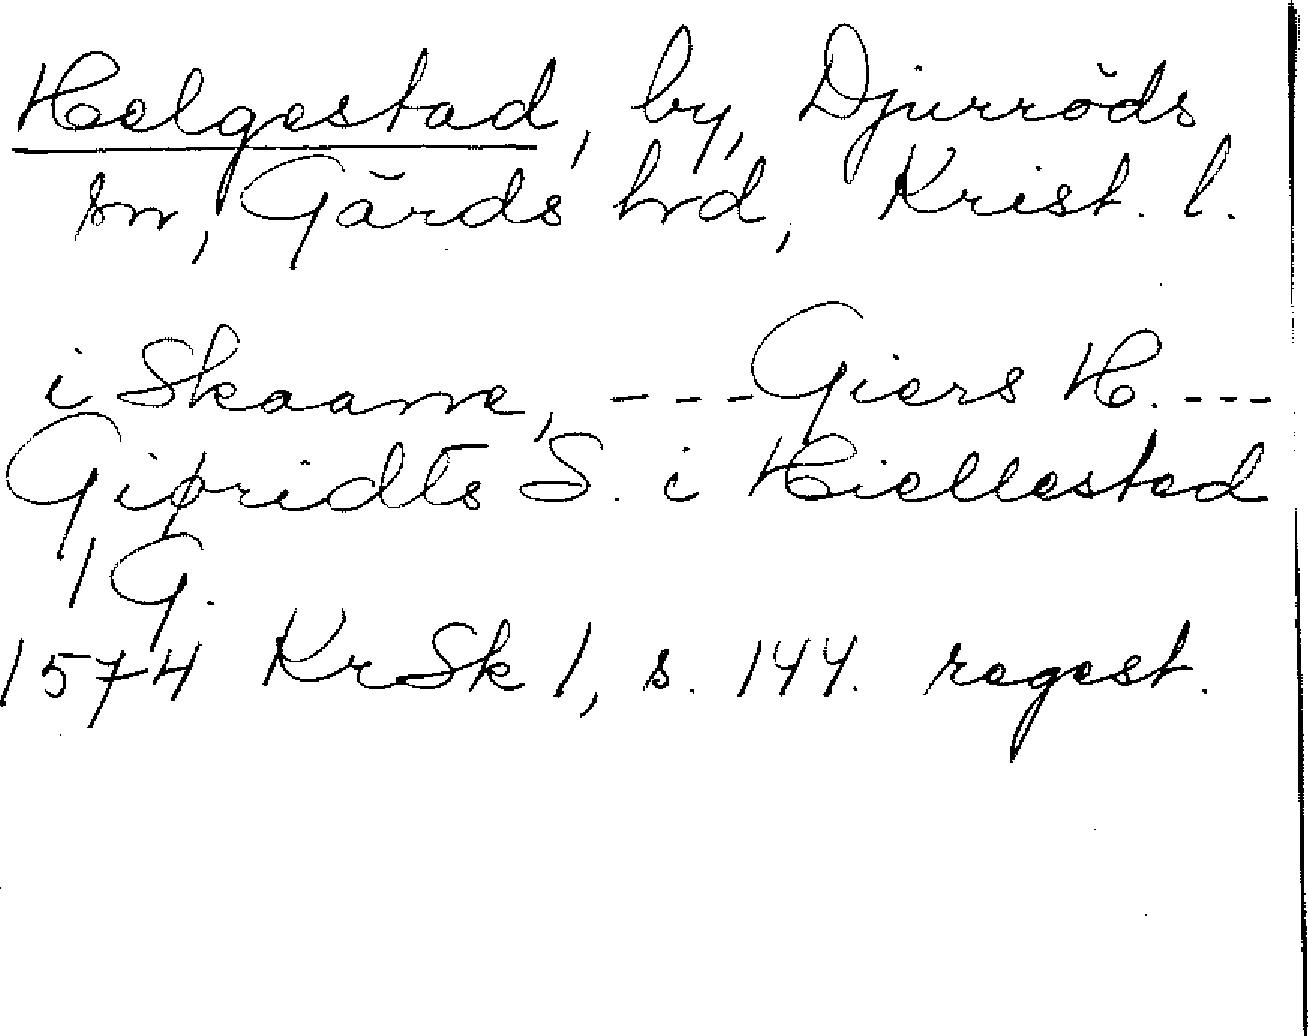 Helgestad, by, Djurröds
sn, Gärds hrd, Krist. l.
i Skaane, --- Giers H. ---
Giøridts S. i Hiellested
1 G.
1574 KrSk 1, s. 144. regest.